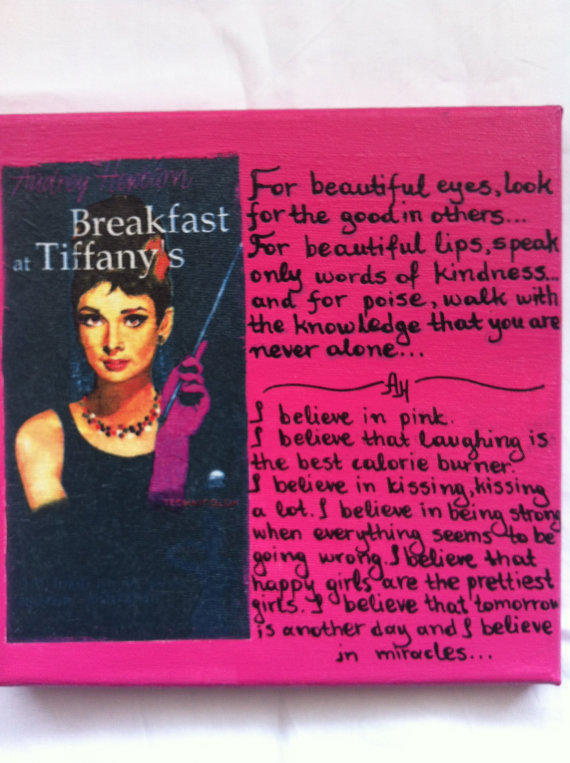 Audrey Hepburn
Breakfast
at Tiffany's
TECHNICOLOR
For beautiful eyes, look
for the good in others...
For beautiful lips, speak
only words of kindness...
and for poise, walk with
the knowledge that you are
never alone...
AH
I believe in pink.
I believe that laughing is
the best calorie burner.
I believe in kissing, kissing
a lot. I believe in being strong
when everything seems to be
going wrong. I believe that
happy girls are the prettiest
girls. I believe that tomorrow
is another day and I believe
in miracles...